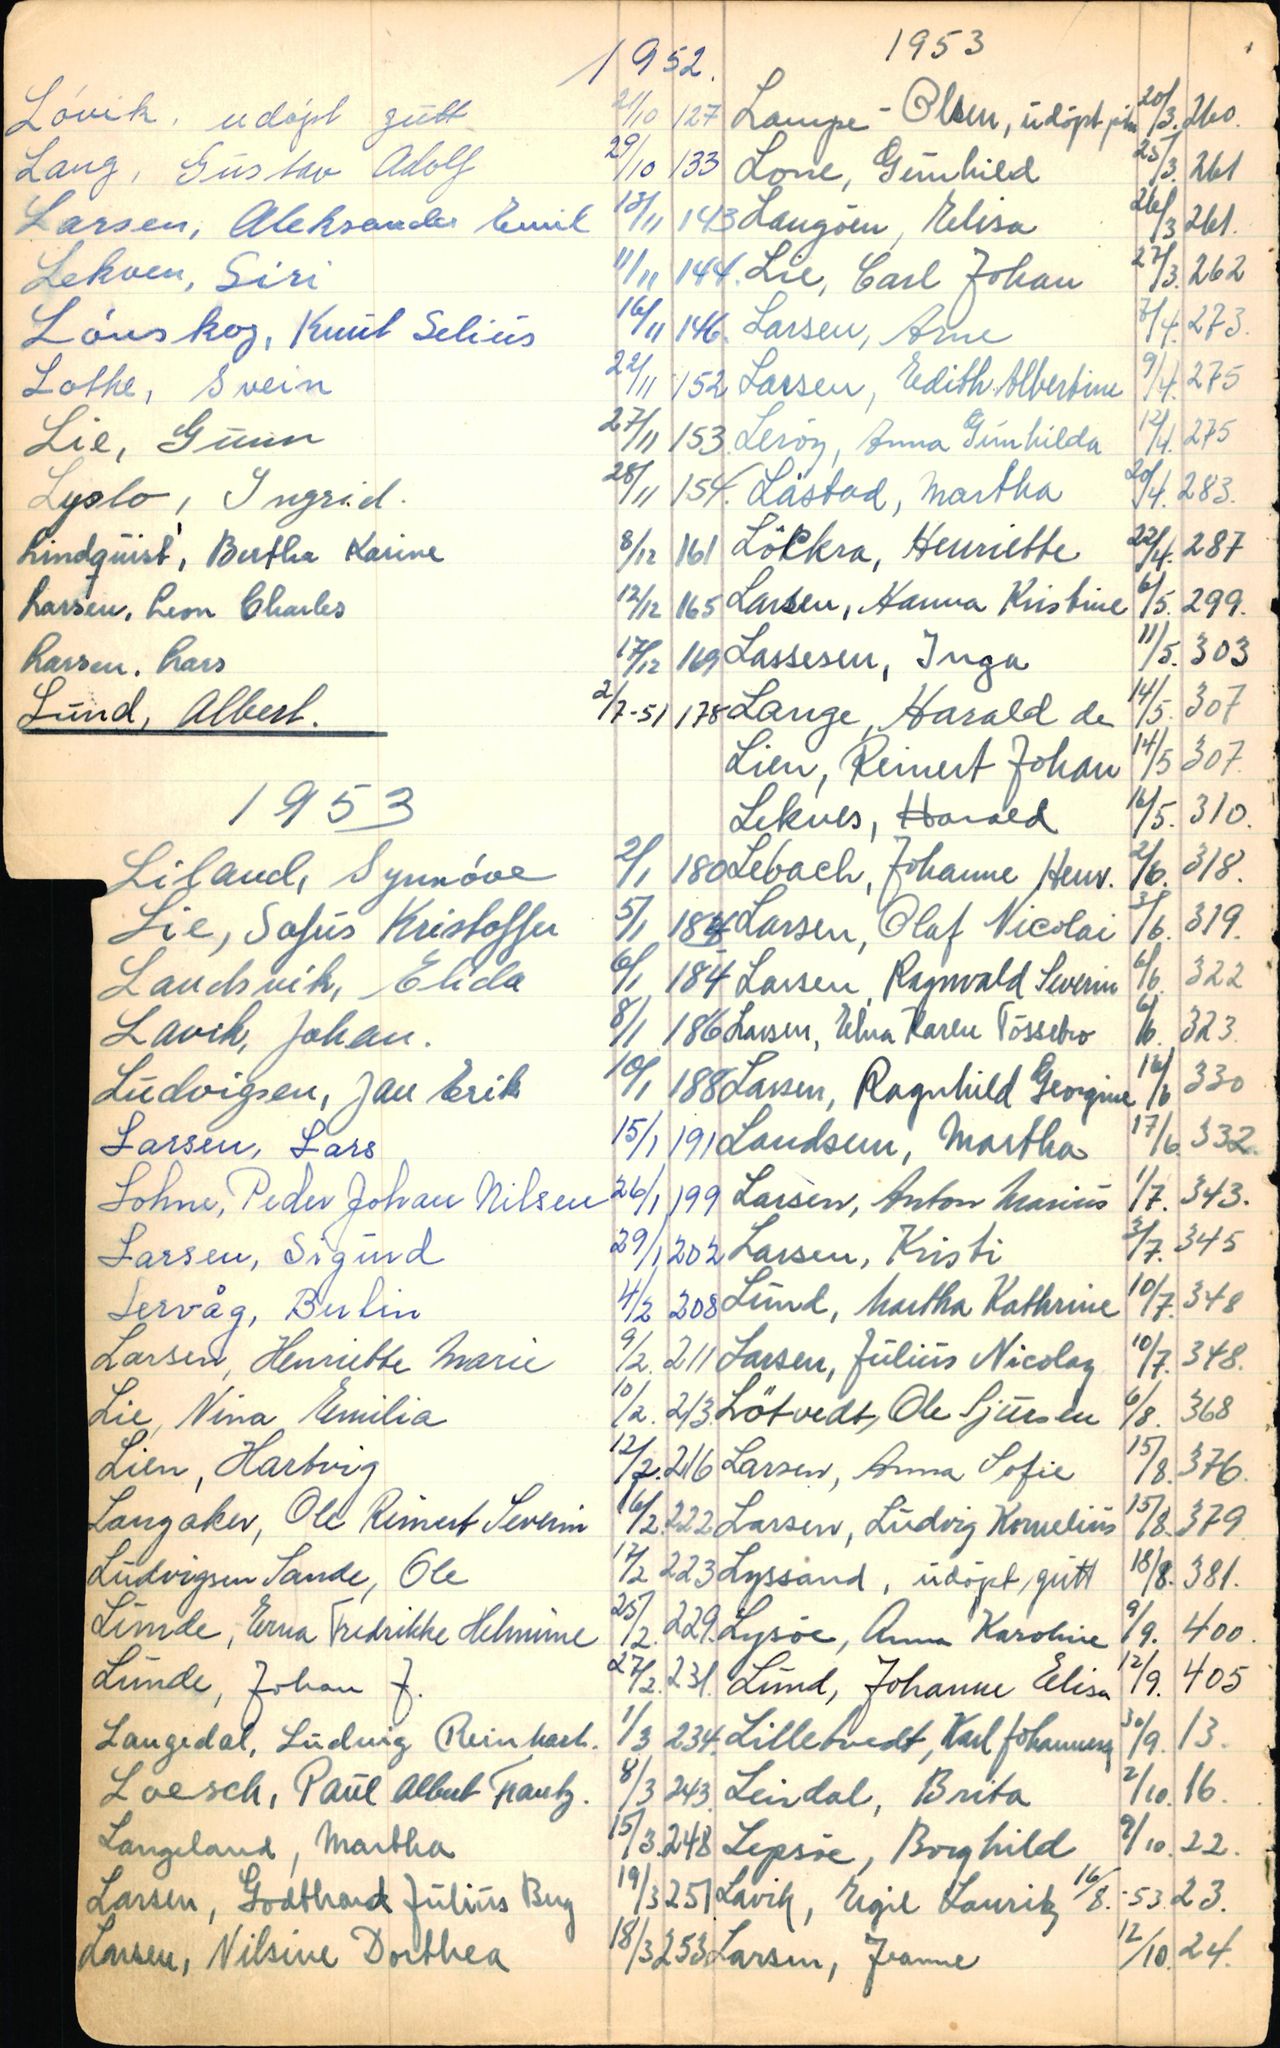 1952.
Lövik, udöpt gutt 21/10 127
Lang, Gustav Adolf 29/10 133
Larsen, Aleksander Emil 13/11 143
Lekven, Siri 11/11 144.
Lönskog, Knut Selius 16/11 146.
Lothe, Svein 22/11 152
Lie, Gunn 27/11 153
Lyslo, Ingrid. 28/11 154.
Lindquist, Bertha Karine 8/12 161
Larsen, Leon Charles 12/12 165
Larsen, Lars 17/12 169
Lund, Albert. 2/7-51 178
1953
Liland, Synnöve 2/1 180
Lie, Sofus Kristoffer 5/1 184
Landsvik, Elida 6/1 184
Lavik, Johan. 8/1 186
Ludvigsen, Jan Erik 10/1 188
Larsen, Lars 15/1 191
Lohne, Peder Johan Nilsen 26/1 199
Larsen, Sigurd 29/1 202
Lervåg, Berlin 4/2 208
Larsen, Henriette Marie 9/2. 211
Lie, Nina Emilia 10/2. 213.
Lien, Hartvig 12/2. 216
Langaker, Ole Reinert Severin 16/2. 222
Ludvigsen Sande, Ole 17/2 223
Lunde, Erna Fredrikke Helmine 25/2. 229.
Lunde, Johan J. 27/2. 231.
Langedal, Ludvig Reinhart. 1/3 234.
Loesch, Paul Albert Frantz. 8/3 243
Langeland, Martha 15/3. 248
Larsen, Godthard Julius Berg 19/3 251
Larsen, Nilsine Dorthea 18/3 253
1953
Lampe-Olsen, udöpt 20/3. 260.
Lone, Gunhild 25/3. 261
Langöen, Elisa 26/3 261.
Lie, Carl Johan 27/3. 262
Larsen, Arne 7/4. 273.
Larsen, Edith Albertine 9/4. 275
Leröy, Anna Gunhilda 12/4. 275
Låstad, Martha 20/4. 283.
Lökkra, Henriette 22/4. 287
Larsen, Hanna Kristine 6/5. 299.
Lassesen, Inga 11/5. 303
Lange, Harald de 14/5. 307
Lien, Reinert Johan 14/5 307.
Lekves, Harald 16/5. 310.
Lebach, Johanne Henr. 2/6. 318.
Larsen, Olaf Nicolai 3/6. 319.
Larsen, Ragnvald Severin 6/6. 322
Larsen, Elna Karen Tössebro 6/6. 323.
Larsen, Ragnhild Georgine 16/6 330
Landsem, Martha 17/6. 332.
Larsen, Anton Marius 1/7. 343.
Larsen, Kristi 3/7. 345
Lund, Martha Kathrine 10/7. 348
Larsen, Julius Nicolay 10/7. 348.
Lötvedt, Ole Sjursen 6/8. 368
Larsen, Anna Sofie 15/8. 376.
Larsen, Ludvig Kornelius 15/8. 379
Lyssand, udöpt gutt 18/8. 381.
Lysöe, Anna Karoline 9/9. 400.
Lund, Johanne Elisa 12/9. 405
Lilletvedt, Karl Johannes 30/9. 13.
Leirdal, Brita 2/10. 16.
Lepsöe, Borghild 9/10. 22.
Lavik, Eigil Lauritz 16/8.-53. 23.
Larsen, Joanne 12/10. 24.